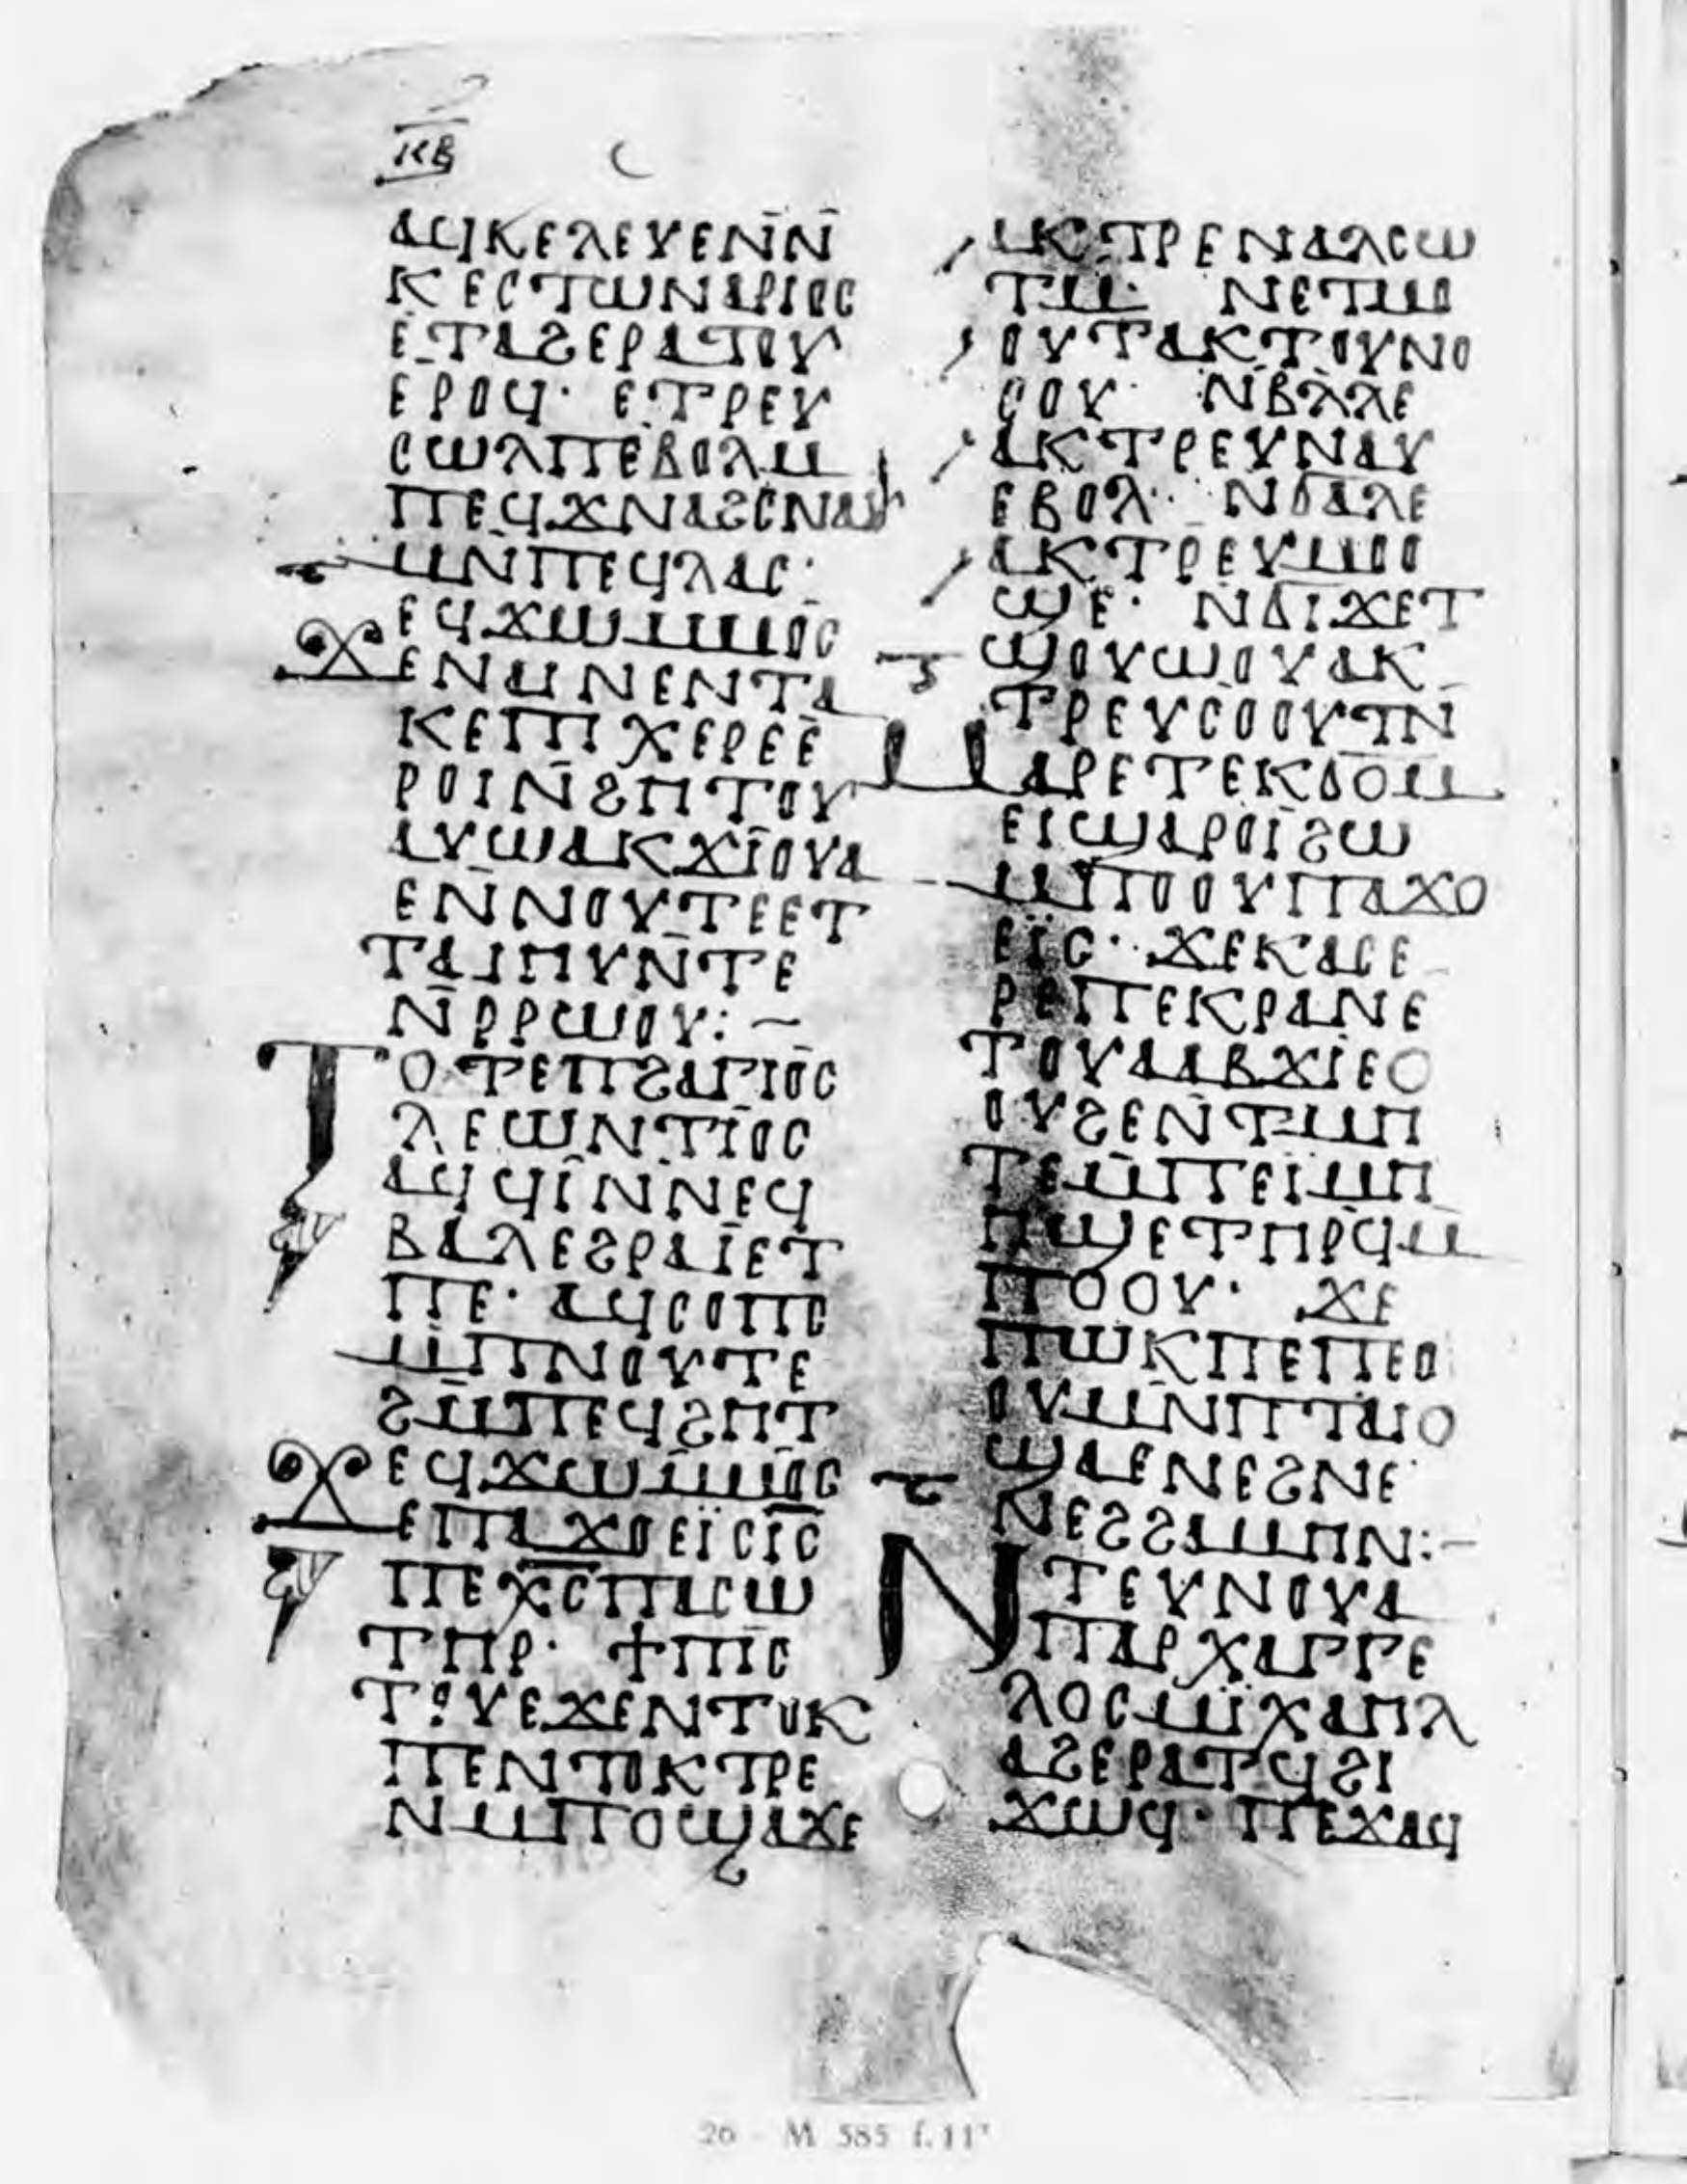 ⲕⲃ
ⲁϥⲕⲉⲗⲉⲩⲉⲛ̄ⲛ̄
ⲕⲉⲥⲧⲱⲛⲁⲣⲓⲟⲥ
ⲉⲧⲁϩⲉⲣⲁⲧⲟⲩ
ⲉⲣⲟϥ· ⲉⲧⲣⲉⲩ
ⲥⲱⲗⲡⲉⲃⲟⲗⲙ
ⲡⲉϥϫⲛⲁϩⲥⲛⲁⲩ
ⲙⲛ̄ⲡⲉϥⲗⲁⲥ·
ⲉϥϫⲱⲙⲙⲟⲥ
ϫⲉⲛⲁⲓⲛⲉⲛⲧⲁ
ⲕⲉⲡⲓⲭⲉⲣⲉⲉ
ⲣⲟⲓⲛ̄ϩⲏⲧⲟⲩ
ⲁⲩⲱⲁⲕϫⲓⲟⲩⲁ
ⲉⲛ̄ⲛⲟⲩⲧⲉⲉⲧ
ⲧⲁⲓⲏⲩⲛ̄ⲧⲉ
ⲛ̄ⲣⲣⲱⲟⲩ:—
ⲧⲟⲧⲉⲡϩⲁⲅⲓⲟⲥ
ⲗⲉⲱⲛⲧⲓⲟⲥ
ⲁϥϥⲓⲛ̄ⲛⲉϥ
ⲃⲁⲗⲉϩⲣⲁⲓ̈ⲉⲧ
ⲡⲉ· ⲁϥⲥⲟⲡⲥ
ⲙ̄ⲡⲛⲟⲩⲧⲉ
ϩⲙ̄ⲡⲉϥϩⲏⲧ
ⲉϥϫⲱⲙ̄ⲙⲟⲥ
ϫⲉⲡⲁϫⲟⲉⲓⲥⲓ̅ⲥ̅
ⲡⲉⲭ̅ⲥ̅ⲡⲁⲥⲱ
ⲧⲏⲣ· ϯⲡⲓⲥ
ⲧⲟⲩⲉϫⲉⲛⲧⲟⲕ
ⲡⲉⲛⲧⲟⲕⲧⲣⲉ
ⲛⲙⲡⲟϣⲁϫⲉ
ⲁⲕⲧⲣⲉⲛⲁⲗⲥⲱ
ⲧⲙ· ⲛⲉⲧⲙⲟ
ⲟⲩⲧⲁⲕⲧⲟⲩⲛⲟ
ⲥⲟⲩ· ⲛ̄ⲃⲗⲗⲉ
ⲁⲕⲧⲣⲉⲩⲛⲁⲩ
ⲉⲃⲟⲗ· ⲛϭⲁⲗⲉ
ⲁⲕⲧⲣⲉⲩⲙⲟⲟ
ϣⲉ· ⲛϭⲓϫⲉⲧ
ϣⲟⲩϣⲟⲩⲁⲕ
ⲧⲣⲉⲩⲥⲟⲟⲩⲧⲛ
ⲙⲁⲣⲉⲧⲉⲕϭⲟⲙ
ⲉⲓϣⲁⲣⲟⲓ̈ϩⲱ
ⲙ̄ⲡⲟⲟⲩⲡⲁϫⲟ
ⲉⲓ̈ⲥ· ϫⲉⲕⲁⲥⲉ
ⲣⲉⲡⲉⲕⲣⲁⲛⲉ
ⲧⲟⲩⲁⲁⲃϫⲓⲉⲟ
ⲟⲩϩⲉⲛⲧⲙⲏ
ⲧⲉⲙ̄ⲡⲉⲓⲙⲏ
ⲏϣⲉⲧⲏⲣϥⲙ
ⲡⲟⲟⲩ· ϫⲉ
ⲡⲱⲕⲡⲉⲡⲉⲟ
ⲟⲩⲙⲛ̄ⲡⲧⲁⲓⲟ
ϣⲁⲉⲛⲉϩⲛⲉ
ⲛⲉϩϩⲁⲙⲏⲛ:—
ⲛⲧⲉⲩⲛⲟⲩⲁ
ⲡⲁⲣⲭⲁⲅⲅⲉ
ⲗⲟⲥⲙⲓ̈ⲭⲁⲏⲗ
ⲁϩⲉⲣⲁⲧϥϩⲓ
ϫⲱϥ· ⲡⲉϫⲁϥ
26 - M 585 f. 11ᵛ